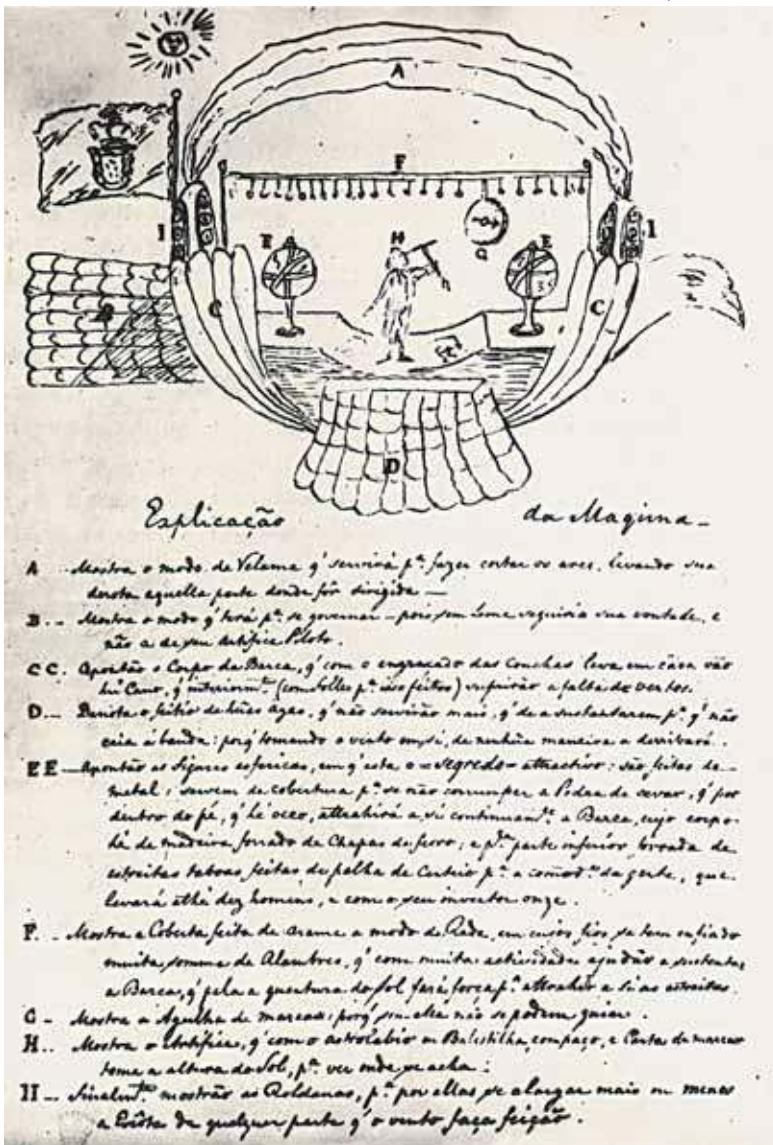 A
F
I
I
E
H
E
G
C
C
B
D
Explicação da Maquina
A Mostra o modo de Velame q' servirá pª fazer cortar os ares, levando sua
derota aquella parte donde fôr dirigida —
B.. Mostra o modo q' terá pª se governar – pois sem Leme seguiria sua vontade, e
não a de seu Artifice Piloto.
CC. Apontão o Corpo da Barca, q' com o engraxado das Conchas leva em cada vão
hũ Cano, q' interiormᵗᵉ (com Folles pª isso feitos) suprirão a falta de ventos.
D.... Denota o feitio de hũas Azas, q' não servirão mais, q' de a sustentarem pª q' não
caia á banda: porq' tomando o vento em si, de nenhũa maneira a derribará.
EE — Apontão as figuras esfericas, em q' está o = segredo = attractivo: são feitas de
metal; servem de cobertura pª se não corromper a Pedra de cevar, q' por
dentro do pé, q' hé oco, attrahirá a si a Barca, cujo corpo
hé de madeira forrado de Chapas de ferro; e pª parte inferior forrada de
estreitas taboas feitas de palha de Centeio pª a comodᵉ da gente, que
levará athé dez homens, e com o seu inventor onze.
F. .. Mostra a Coberta feita de arame a modo de Rede, em cujos fios se tem enfiado
muita somma de Alambres, q' com muita actividade ajudão a sustentar
a Barca, q' pela a quentura do Sol fará força pª attrahir a si as estreitas.
G – Mostra a Agulha de marear: porq' sem ella não se podem guiar.
H.. Mostra o Artifice, q' com o astrolabio ou Balestilha, compaço, e Carta de marear
tome a altura do Sol, pª ver onde se acha:
II.... Finalmᵗᵉ mostrão as Roldanas, pª por ellas se alargar mais ou menos
a Escota de qualquer parte q' o vento faça feição.